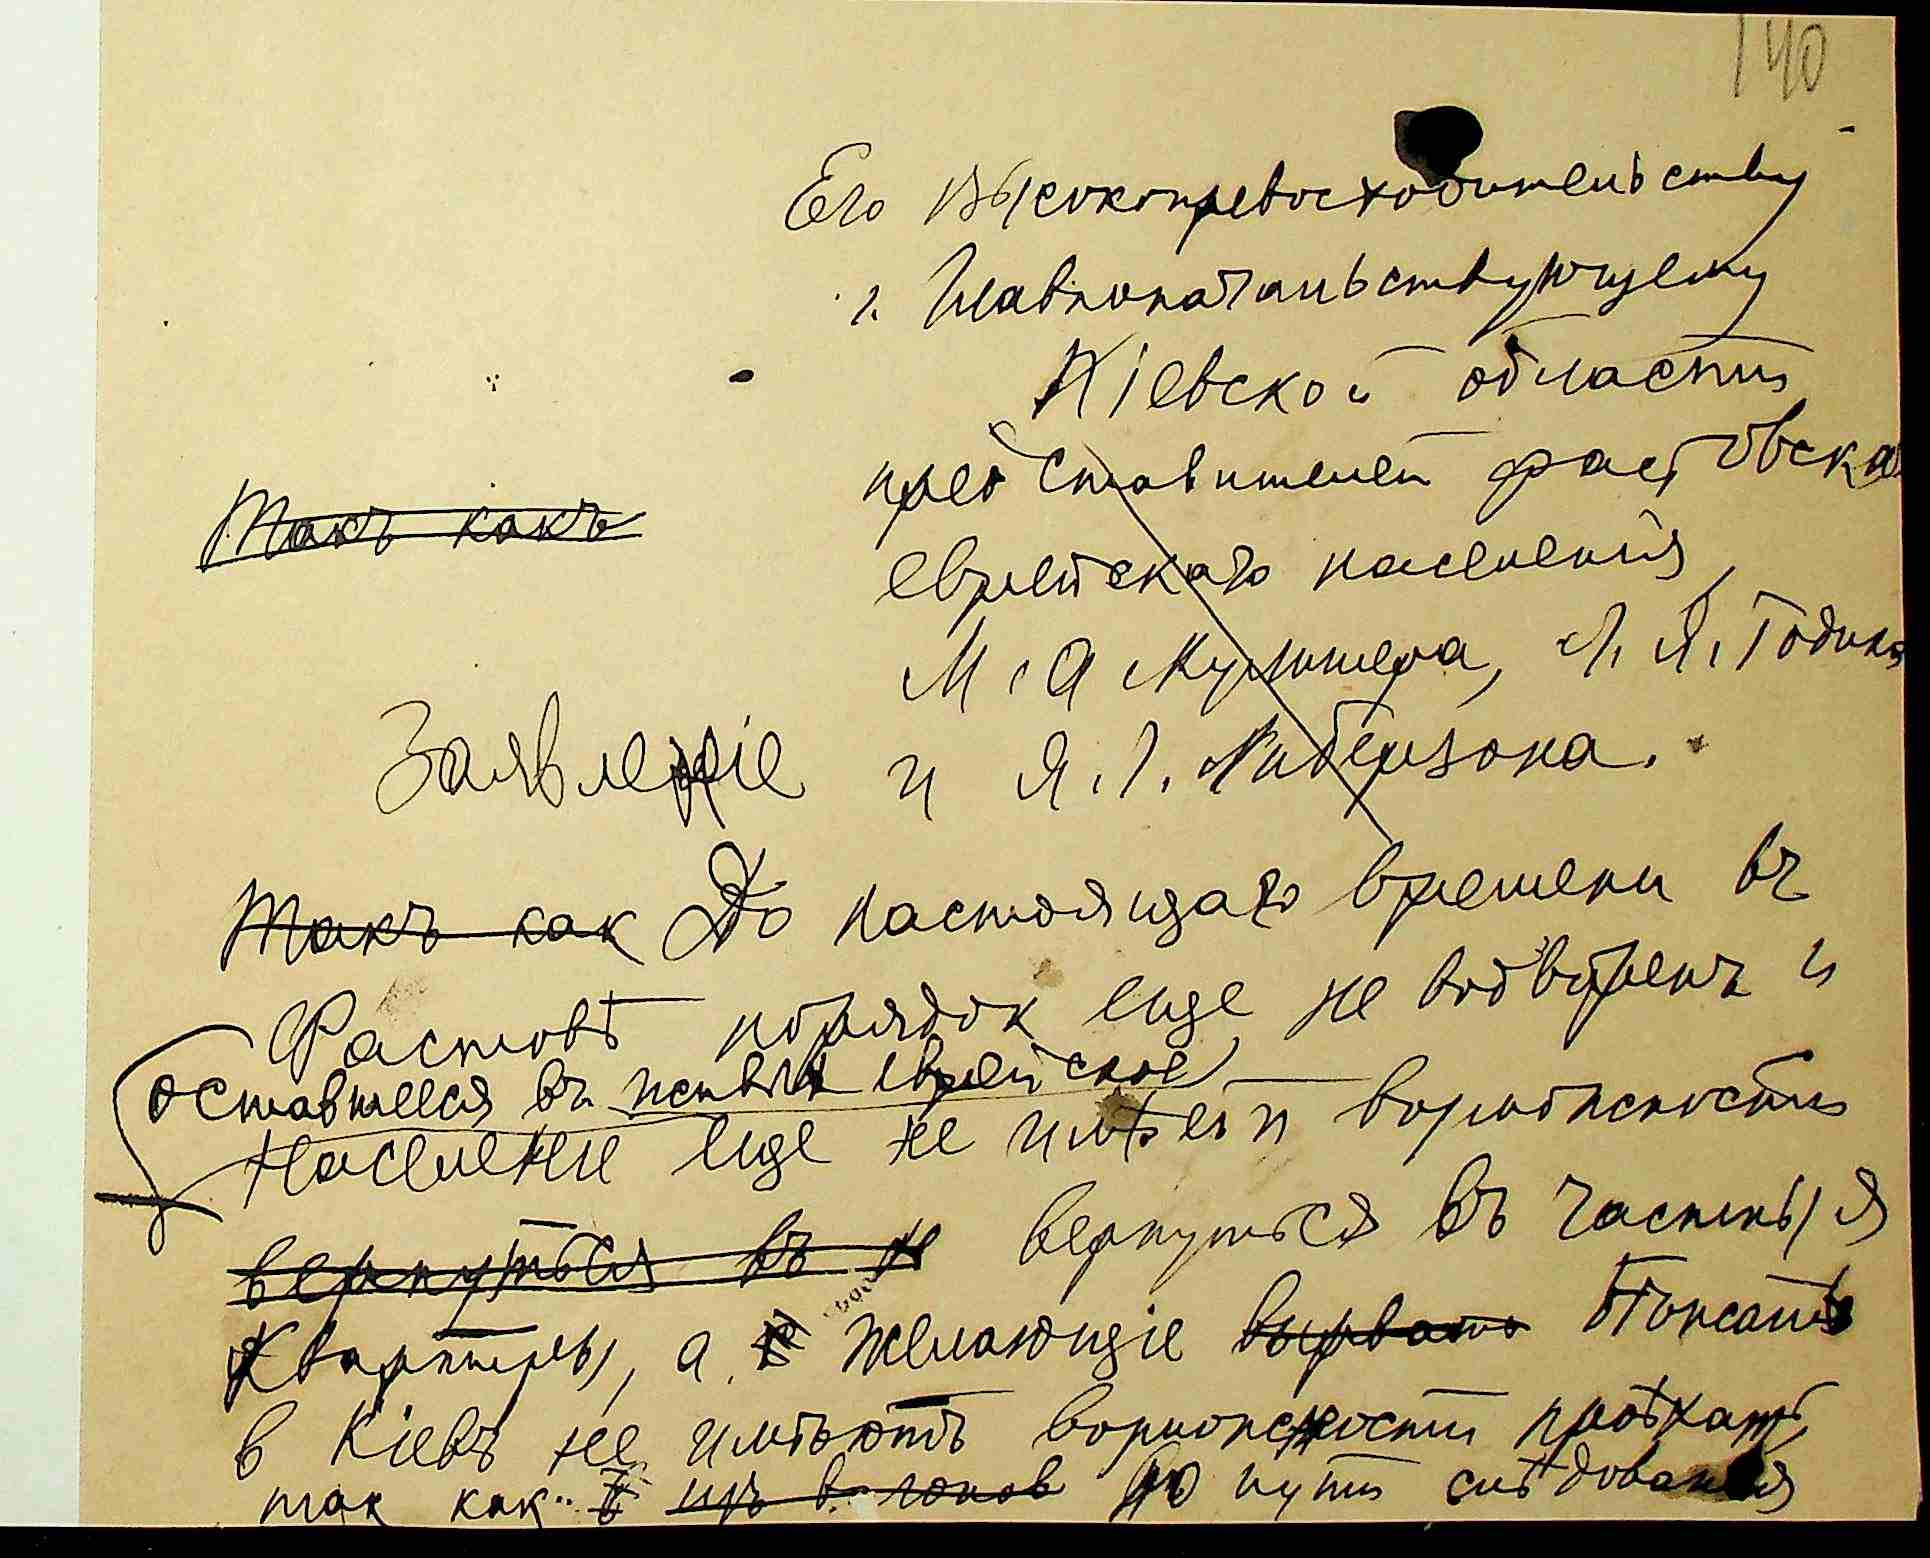 140
Его Высокопревосходительству
г. Главноначальствующему
Кіевской области
представителей фастовска
еврейскаго населенія,
Такъ какъ
М. А. Л. Я. Годика
и Я. Л. Либерзона.
Заявленіе
Такъ как До настоящаго времени въ
Фастовѣ порядок еще не водворенъ и
оставшееся въ живых еврейское
население еще не имѣет возможности
вернуться въ н вернуться въ частныя
квартиры, а желающіе выѣхать отъѣзжать
в Кіевъ не имѣютъ возможности проѣхать,
так как изъ вагонов по пути слѣдования